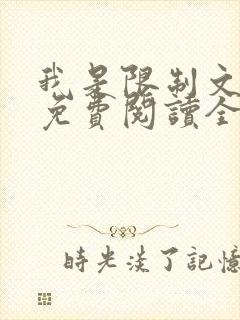 我是限制文
免費閱讀全
時光淡了記憶